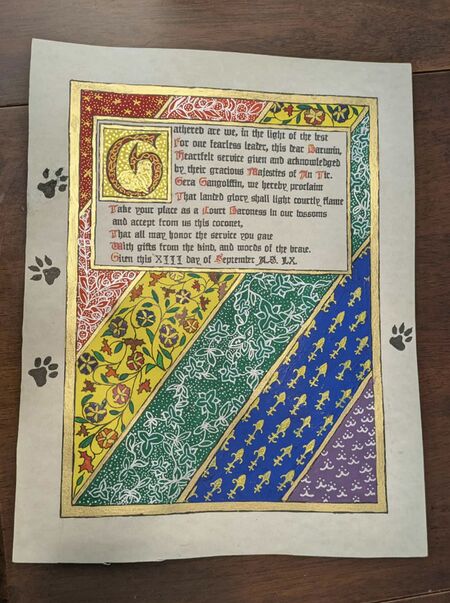 Gathered are we, in the light of the best
For one fearless leader, this dear Baruwin,
Heartfelt service given and acknowledged
by their gracious Majesties of An Tir.
Gera Gangolffin, we hereby proclaim
That landed glory shall light courtly flame
Take your place as a Court Baroness in our bosoms
and accept from us this coronet,
That all may honor the service you gave
With gifts from the kind, and words of the brave.
Given this XIII day of September A.S. LX.